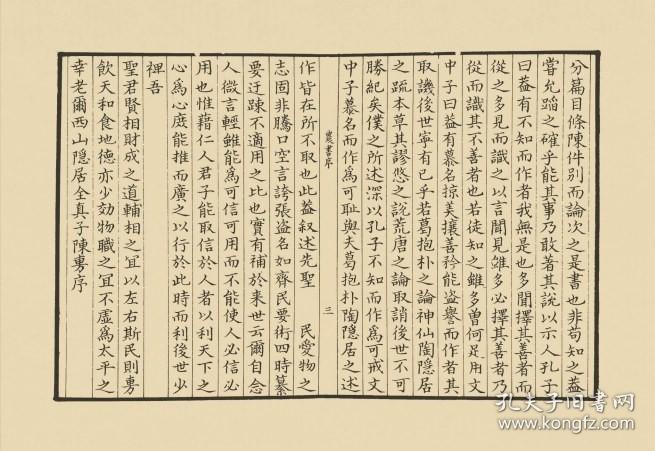 分篇目條陳件別而論次之是書也非苟知之蓋
嘗允蹈之確乎能其事乃敢著其說以示人孔子
曰蓋有不知而作者我無是也多聞擇其善者而
從之多見而識之以言聞見雖多必擇其善者乃
從而識其不善者也若徒知之雖多曽何足用文
中子曰蓋有慕名掠美攘善矜能盜譽而作者其
取譏後世寧有已乎若葛抱朴之論神仙陶隱居
之疏本草其謬悠之說荒唐之論取誚後世不可
勝紀矣僕之所述深以孔子不知而作爲可戒文
中子慕名而作爲可恥與夫葛抱朴陶隱居之述
農書序
三
作皆在所不取也此蓋叙述先聖 民愛物之
志固非騰口空言誇張盜名如齊民要術四時纂
要迂踈不適用之比也實有補於來世云爾自念
人微言輕雖能爲可信可用而不能使人必信必
用也惟藉仁人君子能取信於人者以利天下之
心爲心庶能推而廣之以行於此時而利後世少
裨吾
聖君賢相財成之道輔相之宜以左右斯民則旉
飲天和食地德亦少効物職之宜不虛爲太平之
幸老爾西山隱居全真子陳旉序
孔夫子旧书网
www.kongfz.com